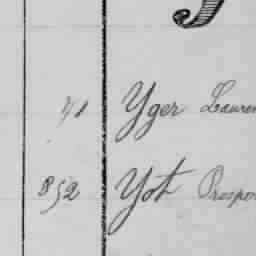 41 Yger Lauren
852 Yot Prospe